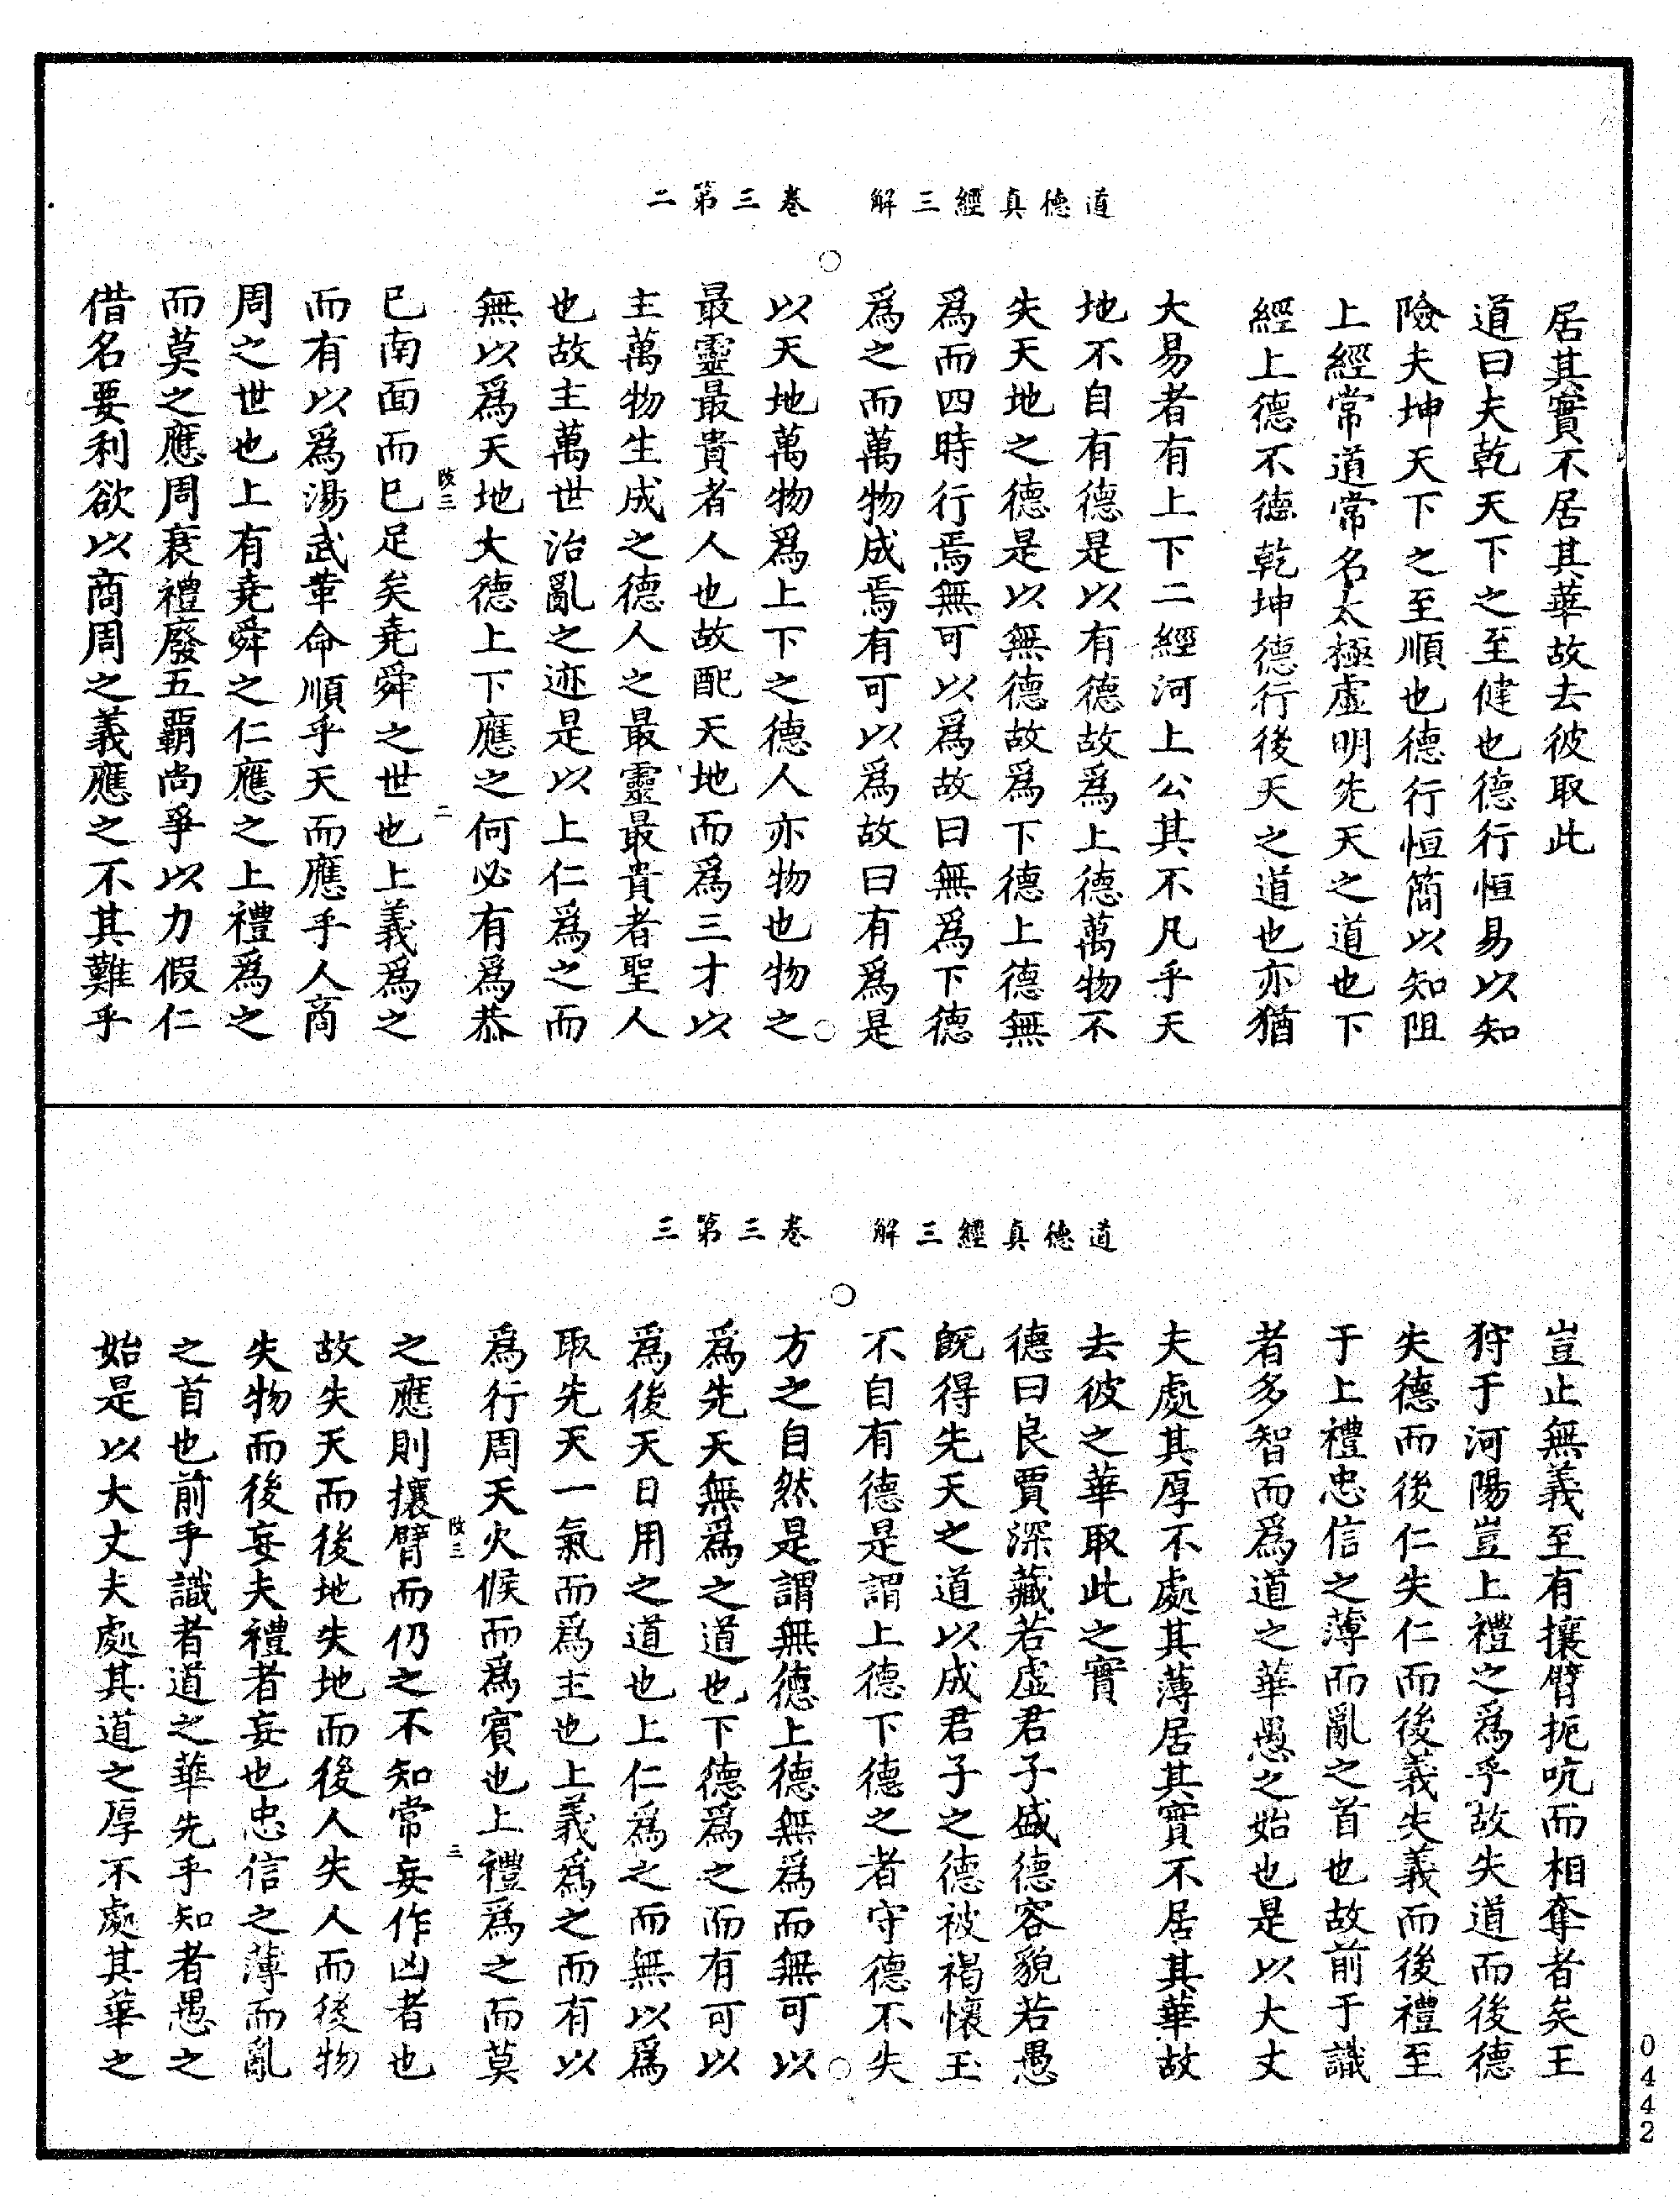 道德真經三解　卷三第二
居其實不居其華故去彼取此
道曰夫乾天下之至健也德行恒易以知
險夫坤天下之至順也德行恒簡以知阻
上經常道常名太極虛明先天之道也下
經上德不德乾坤德行後天之道也亦猶
大易者有上下二經河上公其不凡乎天
地不自有德是以有德故爲上德萬物不
失天地之德是以無德故爲下德上德無
爲而四時行焉無可以爲故曰無爲下德
爲之而萬物成焉有可以爲故曰有爲是
以天地萬物爲上下之德人亦物也物之
最靈最貴者人也故配天地而爲三才以
主萬物生成之德人之最靈最貴者聖人
也故主萬世治亂之迹是以上仁爲之而
無以爲天地大德上下應之何必有爲恭
改三
二
已南面而已足矣堯舜之世也上義爲之
而有以爲湯武革命順乎天而應乎人商
周之世也上有堯舜之仁應之上禮爲之
而莫之應周衰禮廢五霸尚爭以力假仁
借名要利欲以商周之義應之不其難乎
道德真經三解　卷三第三
豈止無義至有攘臂扼吭而相奪者矣王
狩于河陽豈上禮之爲乎故失道而後德
失德而後仁失仁而後義失義而後禮至
于上禮忠信之薄而亂之首也故前于識
者多智而爲道之華愚之始也是以大丈
夫處其厚不處其薄居其實不居其華故
去彼之華取此之實
德曰良賈深藏若虛君子盛德容貌若愚
既得先天之道以成君子之德被褐懷玉
不自有德是謂上德下德之者守德不失
方之自然是謂無德上德無爲而無可以
爲先天無爲之道也下德爲之而有可以
爲後天日用之道也上仁爲之而無以爲
取先天一氣而爲主也上義爲之而有以
爲行周天火候而爲賓也上禮爲之而莫
改三
三
之應則攘臂而仍之不知常妄作凶者也
故失天而後地失地而後人失人而後物
失物而後妄夫禮者妄也忠信之薄而亂
之首也前乎識者道之華先乎知者愚之
始是以大丈夫處其道之厚不處其華之
0442